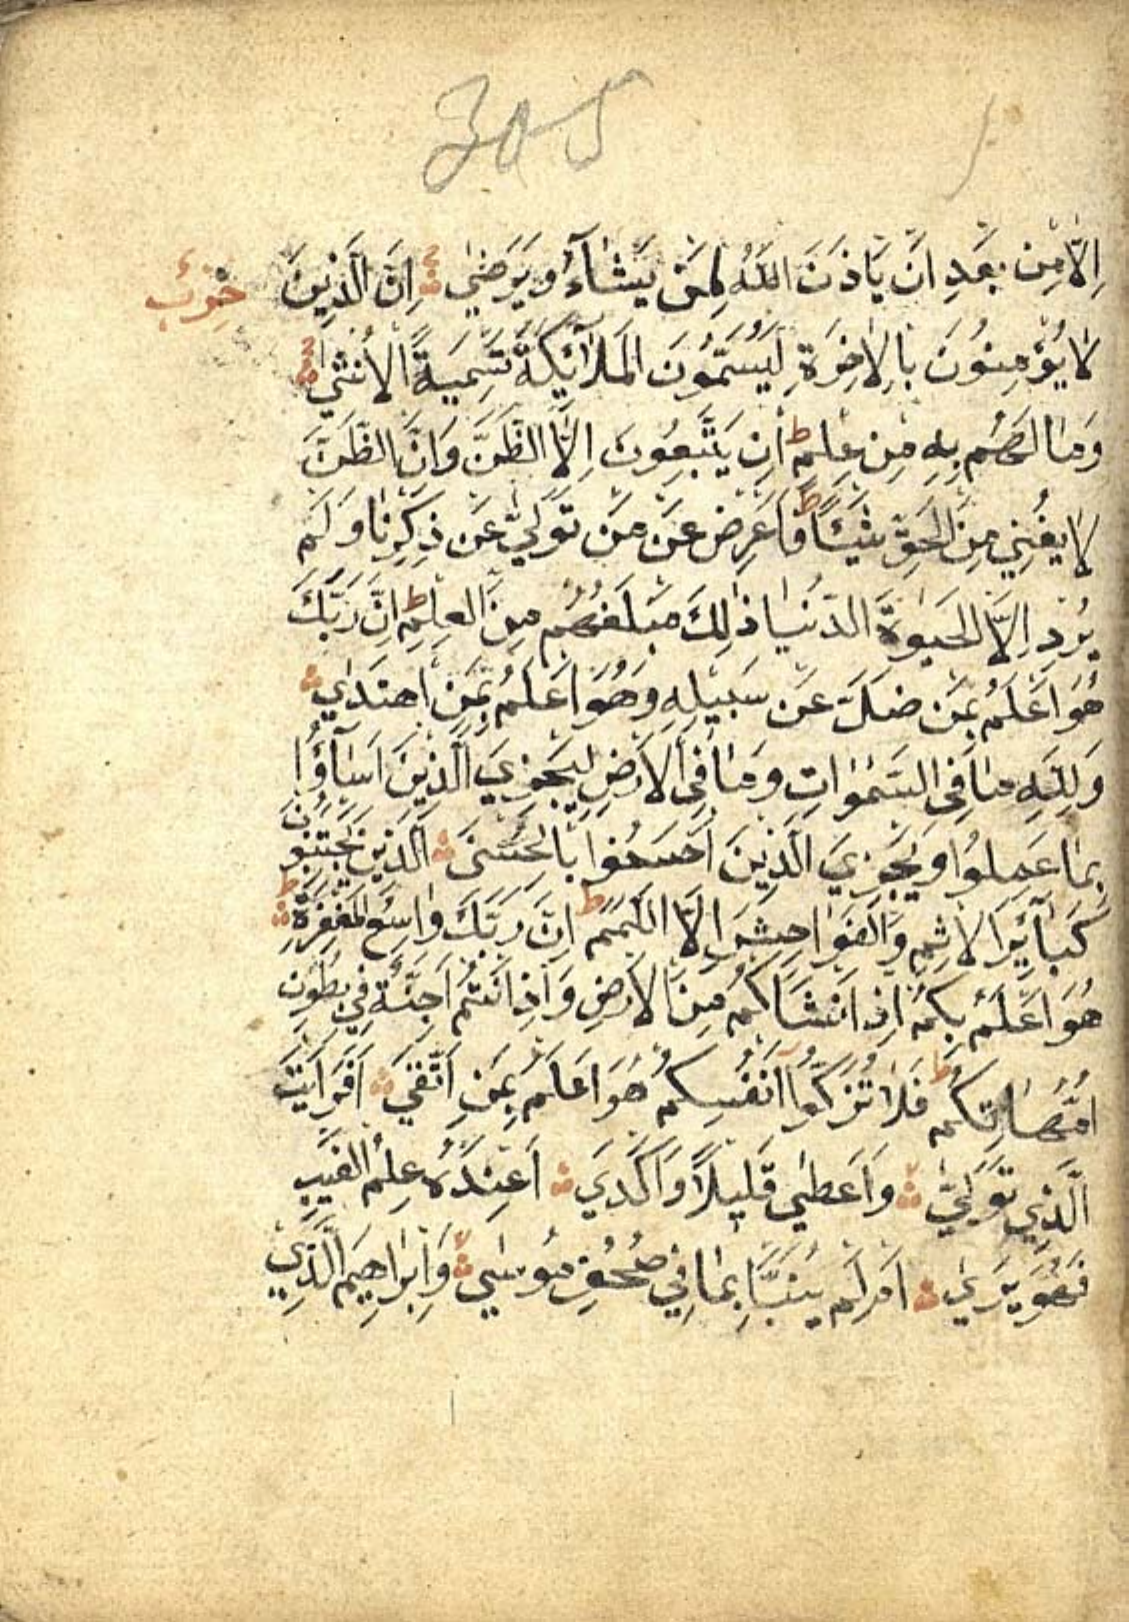 305
اِلَّا مِنْ بَعْدِ اَنْ يَاْذَنَ اللّٰهُ لِمَنْ يَشَاۤءُ وَيَرْضٰى ۞ اِنَّ الَّذِينَ حزب
لَا يُؤْمِنُونَ بِالْاٰخِرَةِ لَيُسَمُّونَ الْمَلٰۤائِكَةَ تَسْمِيَةَ الْاُنْثٰي
وَمَا لَهُمْ بِهِ مِنْ عِلْمٍ ط اِنْ يَتَّبِعُونَ اِلَّا الظَّنَّ وَاِنَّ الظَّنَّ
لَا يُغْنِي مِنَ الْحَقِّ شَيْئًا ط فَاَعْرِضْ عَنْ مَنْ تَوَلّٰي عَنْ ذِكْرِنَا وَلَمْ
يُرِدْ اِلَّا الْحَيٰوةَ الدُّنْيَا ذٰلِكَ مَبْلَغُهُمْ مِنَ الْعِلْمِ ط اِنَّ رَبَّكَ
هُوَ اَعْلَمُ بِمَنْ ضَلَّ عَنْ سَبِيلِهِ وَهُوَ اَعْلَمُ بِمَنِ اهْتَدٰي
وَلِلّٰهِ مَا فِى السَّمٰوَاتِ وَمَا فِى الْاَرْضِ لِيَجْزِيَ الَّذِينَ اَسَاۤؤُا
بِمَا عَمِلُوا وَيَجْزِيَ الَّذِينَ اَحْسَنُوا بِالْحُسْنَى ۞ الَّذِينَ يَجْتَنِبُونَ
كَبَاۤئِرَ الْاِثْمِ وَالْفَوَاحِشَ اِلَّا اللَّمَمَ ط اِنَّ رَبَّكَ وَاسِعُ الْمَغْفِرَةِ ط
هُوَ اَعْلَمُ بِكُمْ اِذْ اَنْشَاَكُمْ مِنَ الْاَرْضِ وَاِذْ اَنْتُمْ اَجِنَّةٌ فِي بُطُونِ
اُمَّهَاتِكُمْ ط فَلَا تُزَكُّوۤا اَنْفُسَكُمْ هُوَ اَعْلَمُ بِمَنِ اتَّقٰي ۞ اَفَرَاَيْتَ
الَّذِي تَوَلّٰي ۞ وَاَعْطٰي قَلِيلًا وَاَكْدَي ۞ اَعِنْدَهُ عِلْمُ الْغَيْبِ
فَهُوَ يَرٰي ۞ اَمْ لَمْ يُنَبَّاْ بِمَا فِي صُحُفِ مُوسٰي ۞ وَاِبْرَاهِيمَ الَّذِي